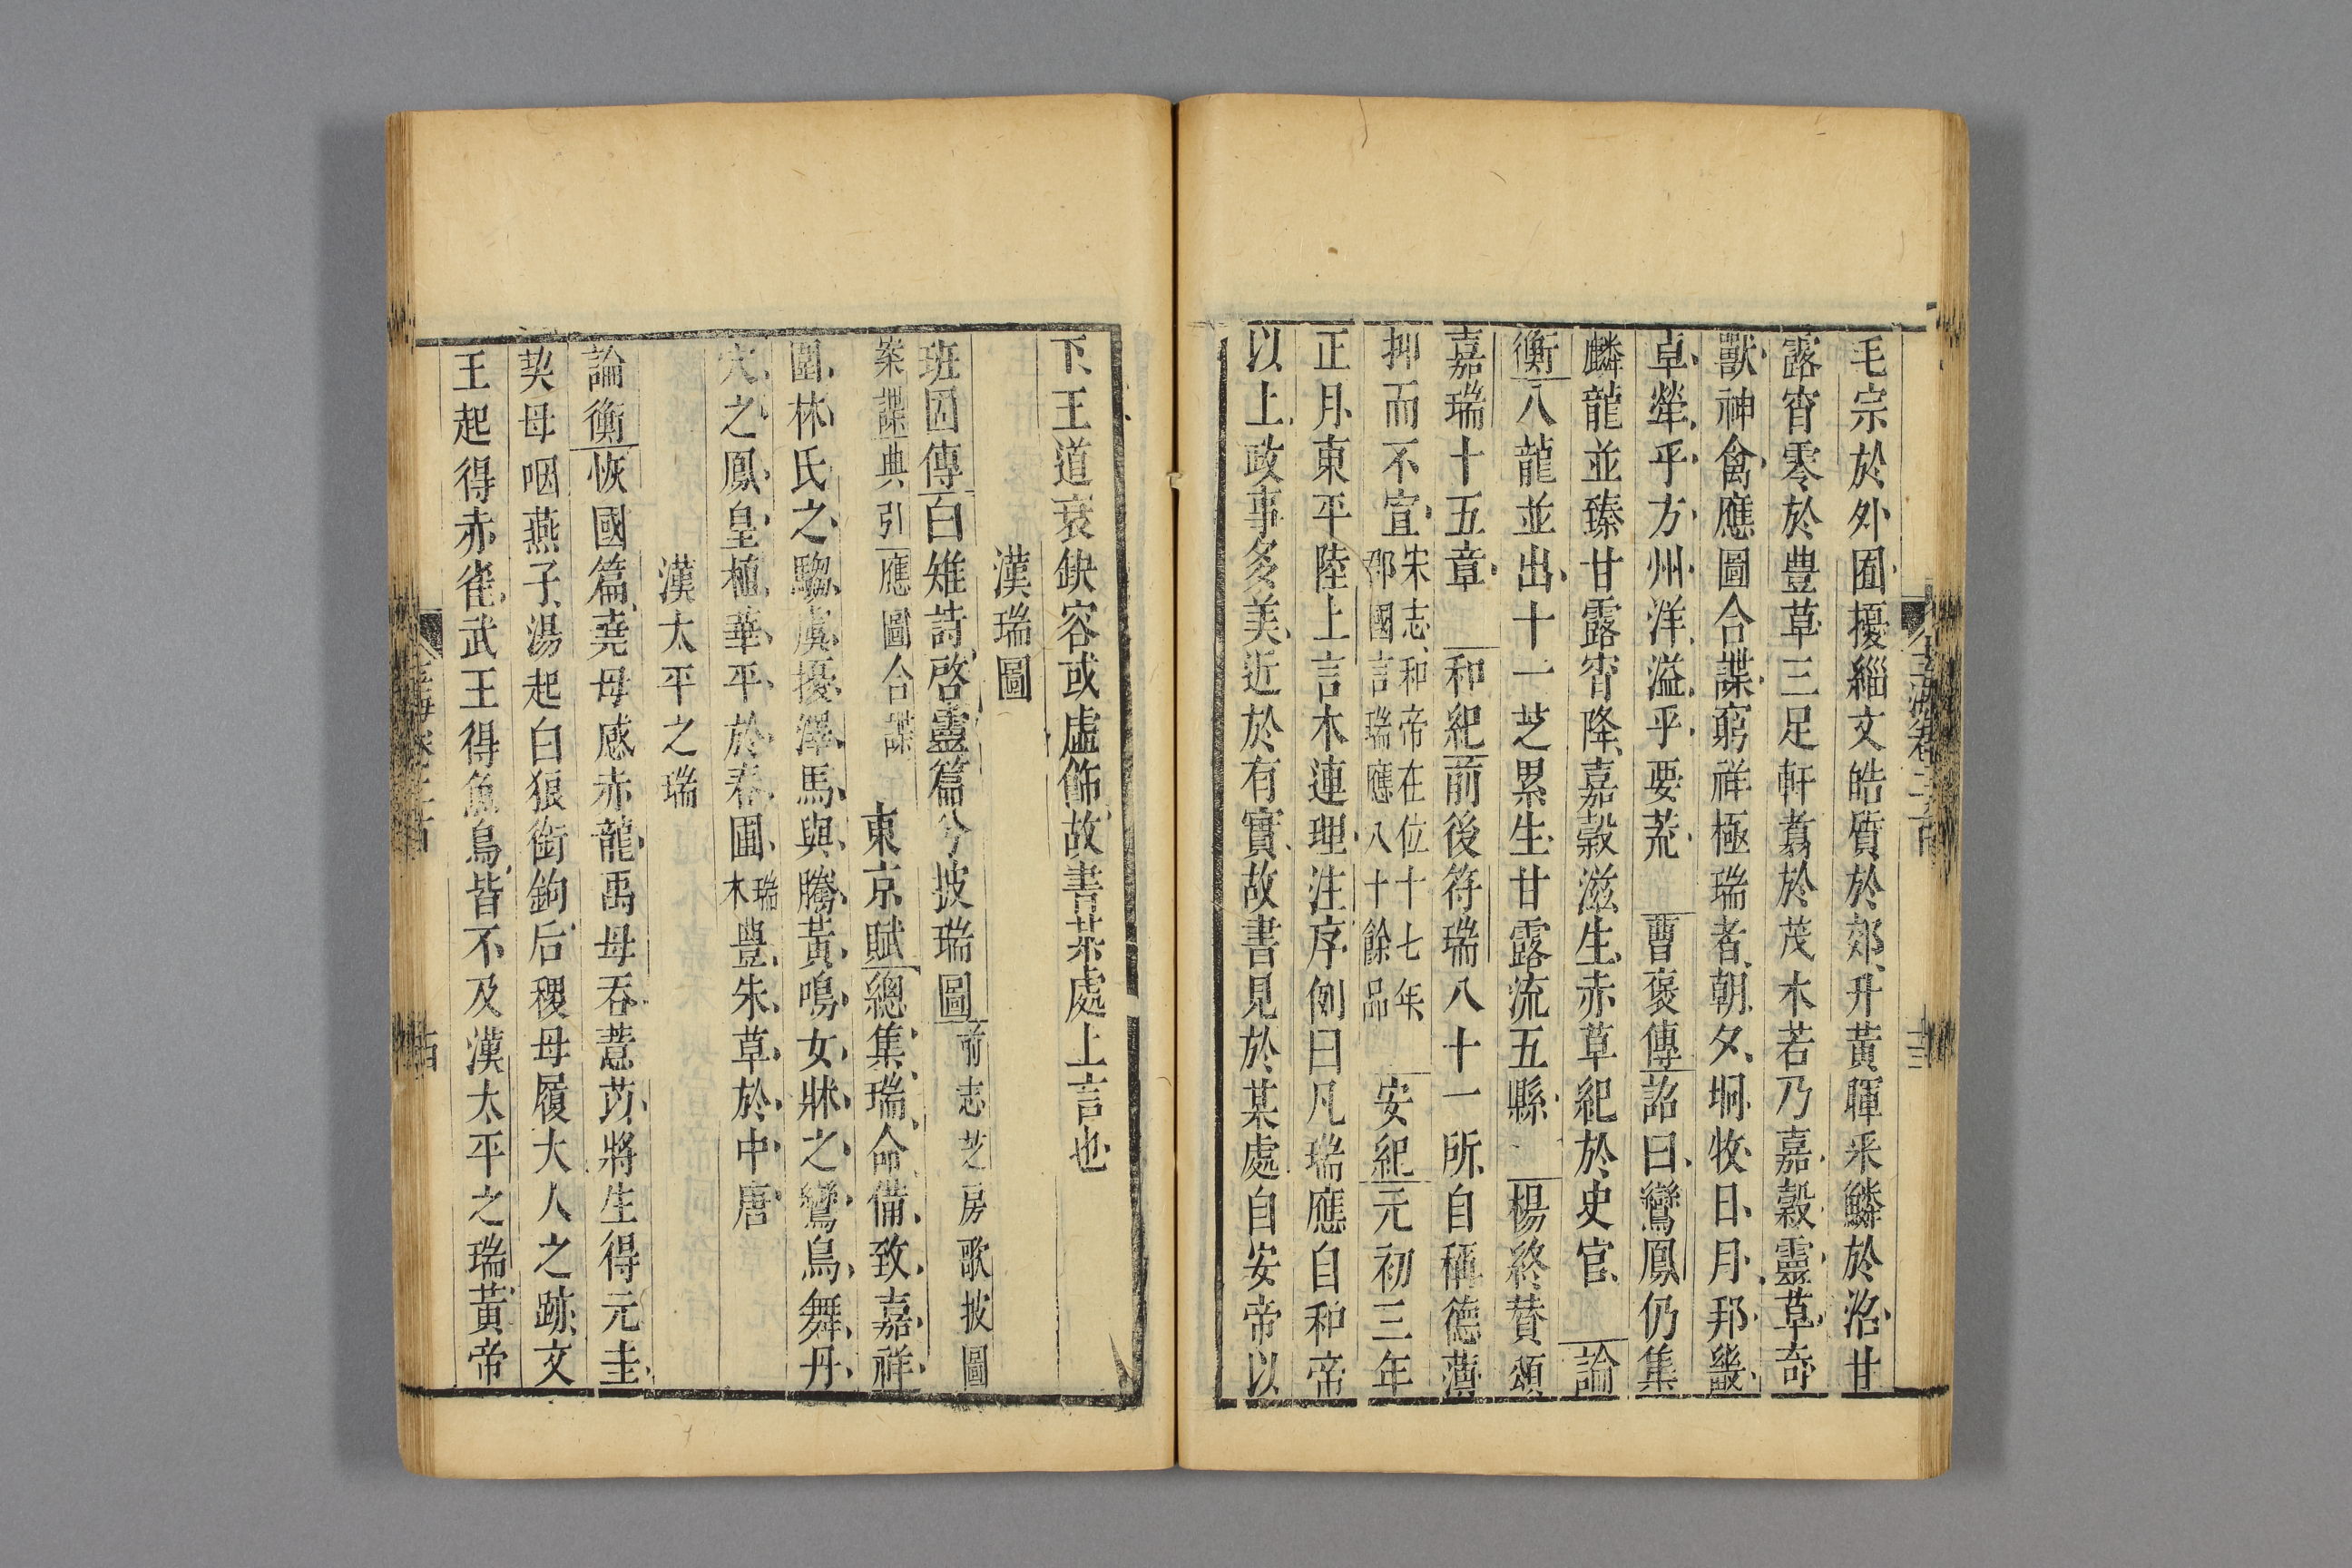 毛宗於外囿擾緇文皓質於郊升黃暉采鱗於沼甘
露宵零於豊草三足軒翥於茂木若乃嘉穀靈草奇
獸神禽應圖合諜窮祥極瑞者朝夕坰牧日月邦畿
卓犖乎方州洋溢乎要荒 曹褒傳詔曰鸞鳳仍集
麟龍並臻甘露宵降嘉穀滋生赤草紀於史官 論
衡八龍並出十一芝累生甘露流五縣 楊終賛頌
嘉瑞十五章 和紀前後符瑞八十一所自稱德薄
抑而不宣宋志和帝在位十七年郡國言瑞應八十餘品 安紀元初三年
正月東平陸上言木連理注序例曰凡瑞應自和帝
以上政事多美近於有實故書見於某處自安帝以
下王道衰缺容或虛飾故書某處上言也
漢瑞圖
班固傳白雉詩啓靈篇兮披瑞圖前志芝房歌披圖
案諜典引應圖合諜 東京賦總集瑞命備致嘉祥
圍林氏之騶虞擾澤馬與騰黃鳴女牀之鸞鳥舞丹
穴之鳳皇植華平於春圃瑞木豊朱草於中唐
漢太平之瑞
論衡恢國篇堯母感赤龍禹母吞薏苡將生得元圭
契母咽燕子湯起白狼銜鉤后稷母履大人之跡文
王起得赤雀武王得魚烏皆不及漢太平之瑞黃帝